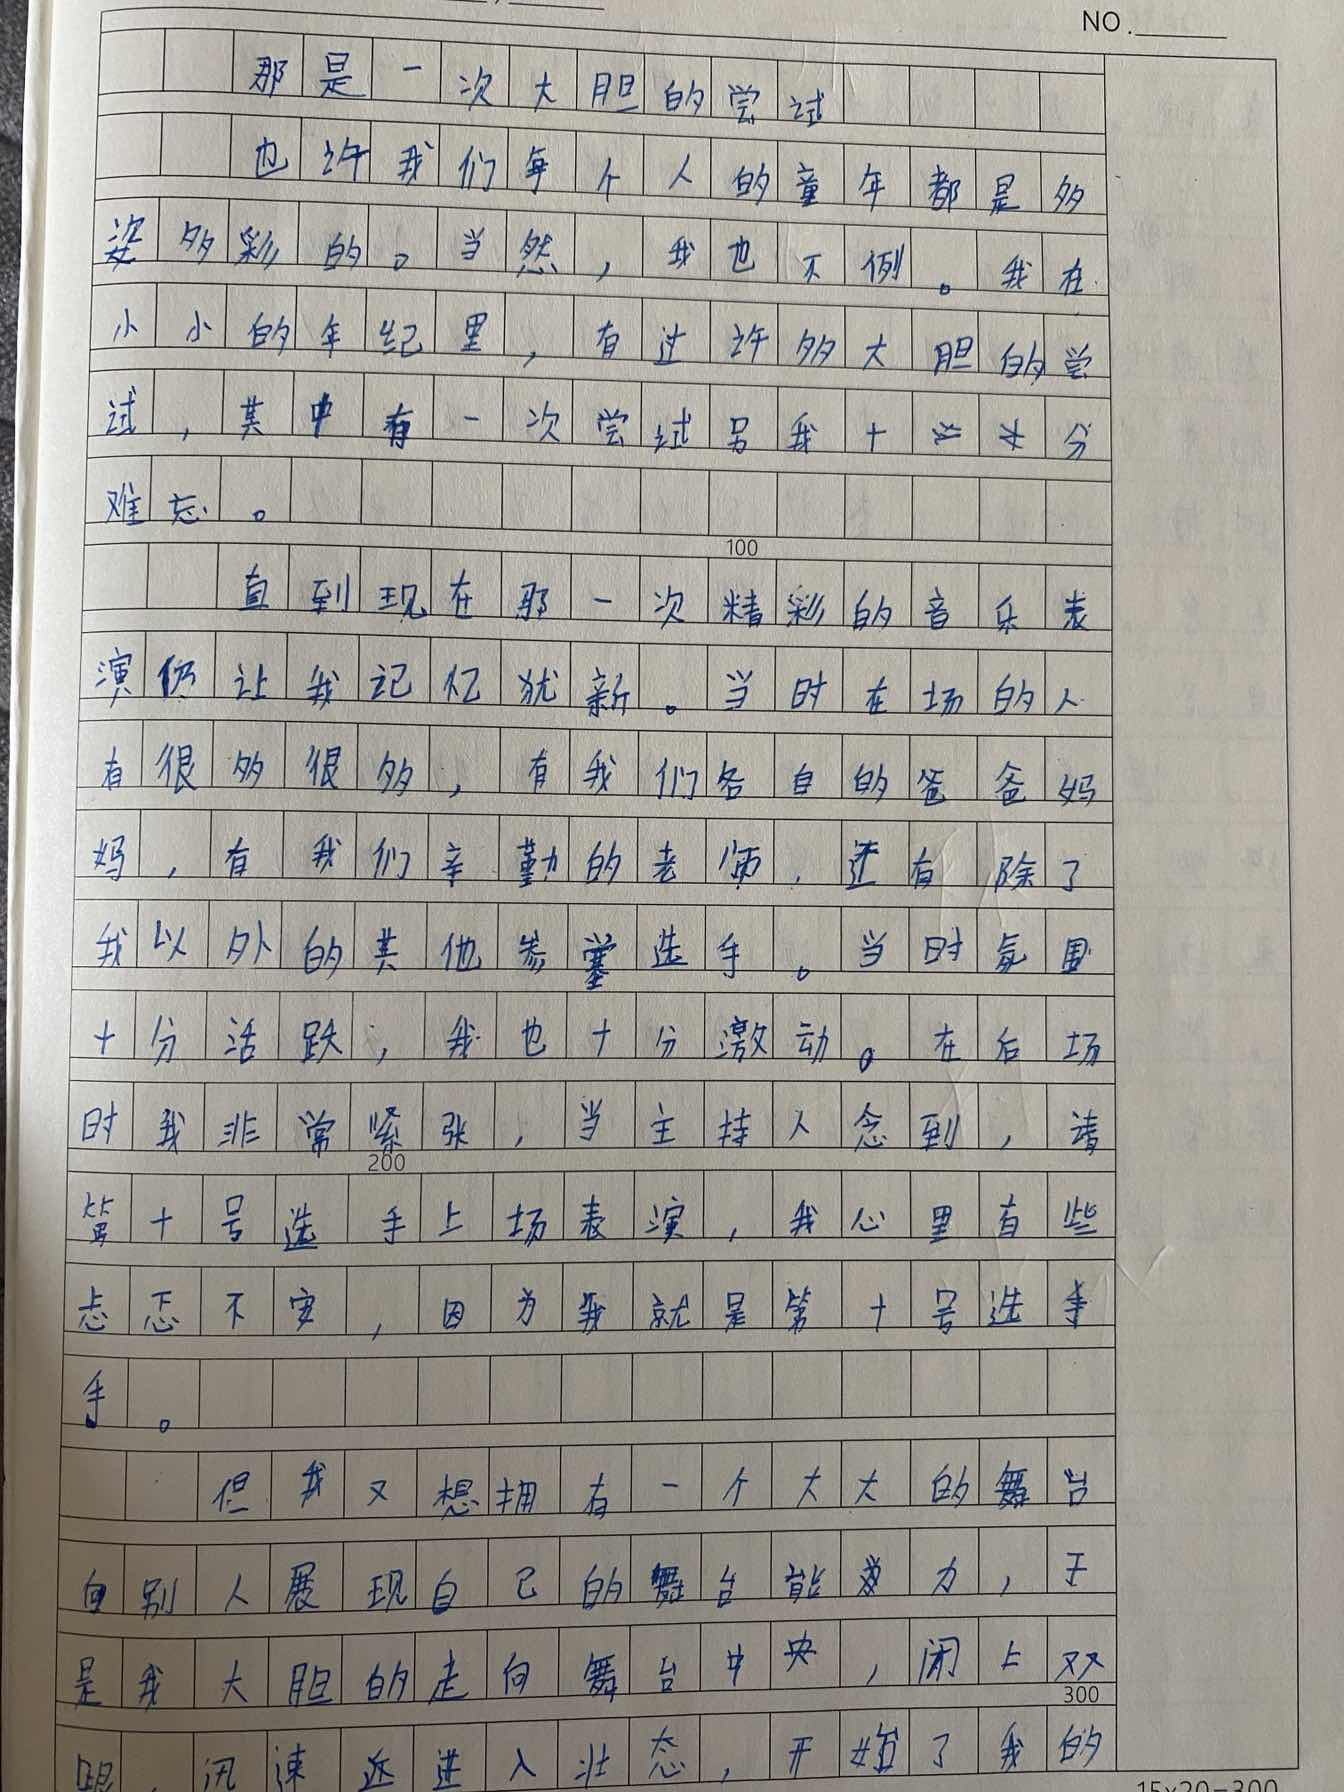 NO.
那是一次大胆的尝试
也许我们每个人的童年都是多
姿多彩的。当然，我也不例。我在
小小的年纪里，有过许多大胆的尝
试，其中有一次尝试另我十分
难忘。
100
直到现在那一次精彩的音乐表
演仍让我记忆犹新。当时在场的人
有很多很多，有我们各自的爸爸妈
妈，有我们辛勤的老师，还有除了
我以外的其他参赛选手。当时氛围
十分活跃，我也十分激动。在后场
时我非常紧张，当主持人念到，请
200
第十号选手上场表演，我心里有些
忐忑不安，因为我就是第十号选手
手。
但我又想拥有一个大大的舞台
向别人展现自己的舞台能力，于
是我大胆的走向舞台中央，闭上双
300
眼，迅速进入状态，开始了我的
15×20=300